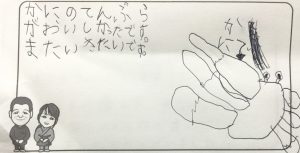 かにのてんぷら
がおいしかったです。
またいきたいです
かに